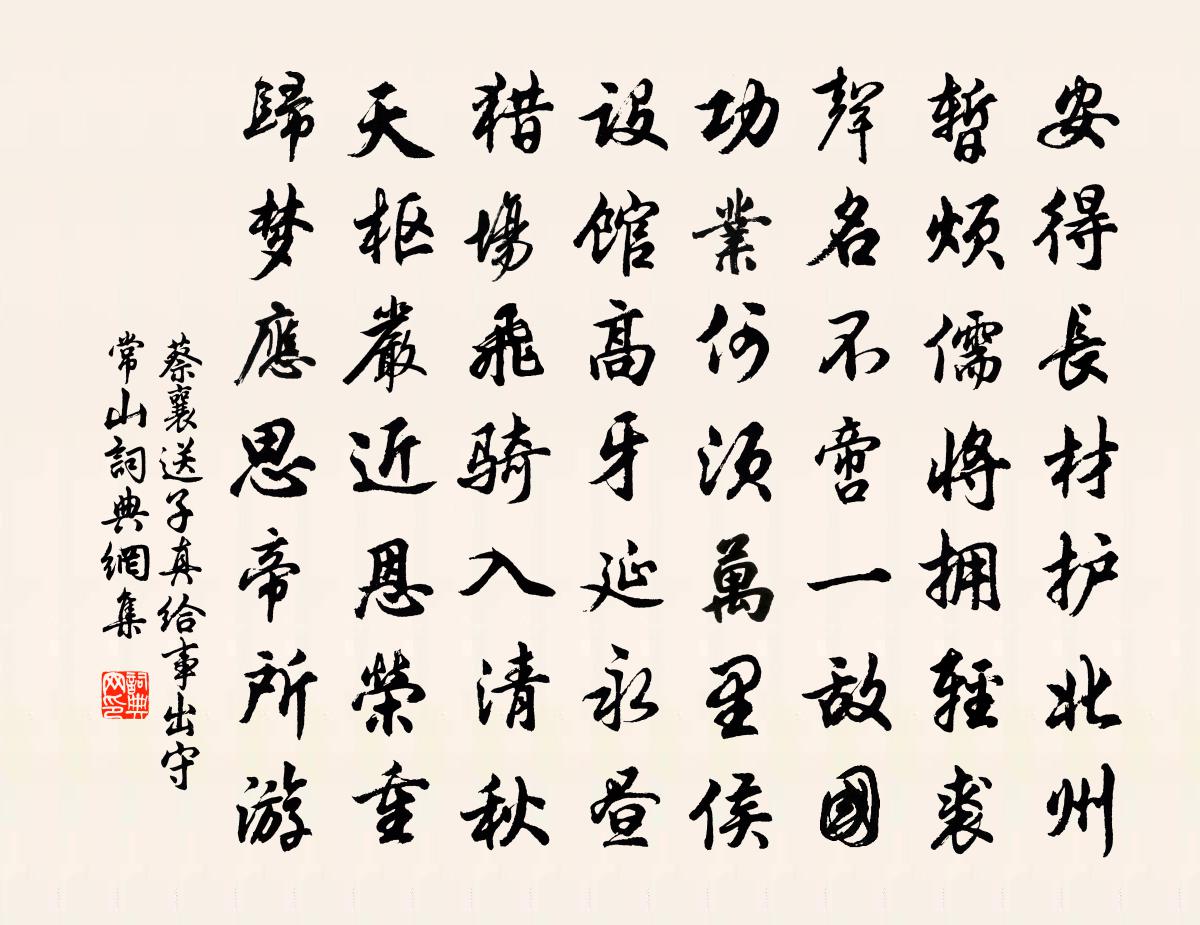 安得長材护北州
暫煩儒將拥輕裘
聲名不啻一敌國
功業何須萬里侯
設馆高牙延永昼
猎場飛騎入清秋
天枢嚴近恩榮重
歸梦應思帝所游
蔡襄送子真給事出守
常山詞典網集
詞典网印